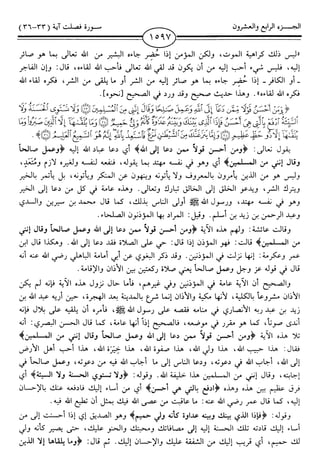 الجـــزء الرابع والعشرون
سـورة فصلت آية (٣٣-٣٦)
١٥٩٧
«ليس ذلك كراهية الموت، ولكن المؤمن إذا حُضِر جاءه البشير من الله تعالى بما هو صائر
إليه، فليس شيء أحب إليه من أن يكون قد لقي الله تعالى فأحب الله لقاءه، قال: وإن الفاجر
ـ أو الكافر ـ إذا حُضِر جاءه بما هو صائر إليه من الشر أو ما يلقى من الشر، فكره لقاء الله
فكره الله لقاءه». وهذا حديث صحيح وقد ورد في الصحيح (نحوه).
﴿وَمَنْ أَحْسَنُ قَوْلًا مِّمَّن دَعَا إِلَى اللَّهِ وَعَمِلَ صَالِحًا وَقَالَ إِنَّنِي مِنَ الْمُسْلِمِينَ ۝ وَلَا تَسْتَوِي الْحَسَنَةُ وَلَا
السَّيِّئَةُ ادْفَعْ بِالَّتِي هِيَ أَحْسَنُ فَإِذَا الَّذِي بَيْنَكَ وَبَيْنَهُ عَدَاوَةٌ كَأَنَّهُ وَلِيٌّ حَمِيمٌ ۝ وَمَا يُلَقَّاهَا إِلَّا الَّذِينَ صَبَرُوا وَمَا
يُلَقَّاهَا إِلَّا ذُو حَظٍّ عَظِيمٍ ۝
يقول تعالى: ﴿ومن أحسن قولاً ممن دعا إلى الله﴾ أي دعا عباد الله إليه ﴿وعمل صالحاً
وقال إنني من المسلمين﴾ أي وهو في نفسه مهتد بما يقوله، فنفعه لنفسه ولغيره لازم ومُتعدٍ،
وليس هو من الذين يأمرون بالمعروف ولا يأتونه وينهون عن المنكر ويأتونه، بل يأتمر بالخير
ويترك الشر، ويدعو الخلق إلى الخالق تبارك وتعالى. وهذه عامة في كل من دعا إلى الخير
وهو في نفسه مهتد، ورسول الله ﷺ أولى الناس بذلك، كما قال محمد بن سيرين والسدي
وعبد الرحمن بن زيد بن أسلم. وقيل: المراد بها المؤذنون الصلحاء.
وقالت عائشة: ولهم هذه الآية ﴿ومن أحسن قولاً ممن دعا إلى الله وعمل صالحاً وقال إنني
من المسلمين﴾ قالت: فهو المؤذن إذا قال: حي على الصلاة فقد دعا إلى الله. وهكذا قال ابن
عمر وعكرمة: إنها نزلت في المؤذنين. وقد ذكر البغوي عن أبي أمامة الباهلي رضي الله عنه أنه
قال في قوله عز وجل وعمل صالحاً يعني صلاة ركعتين بين الأذان والإقامة.
والصحيح أن الآية عامة في المؤذنين وفي غيرهم، فأما حال نزول هذه الآية فإنه لم يكن
الأذان مشروعاً بالكلية، لأنها مكية والأذان إنما شرع بالمدينة بعد الهجرة، حين أريه عبد الله بن
زيد بن عبد ربه الأنصاري في منامه فقصه على رسول الله ﷺ، فأمره أن يلقيه على بلال فإنه
أندى صوتاً، كما هو مقرر في موضعه، فالصحيح إذاً أنها عامة، كما قال الحسن البصري: أنه
تلا هذه الآية ﴿ومن أحسن قولاً ممن دعا إلى الله وعمل صالحاً وقال إنني من المسلمين﴾
فقال: هذا حبيب الله، هذا ولي الله، هذا صفوة الله، هذا خِيَرَة الله، هذا أحب أهل الأرض
إلى الله، أجاب الله في دعوته، ودعا الناس إلى ما أجاب الله فيه من دعوته، وعمل صالحاً في
إجابته، وقال إنني من المسلمين هذا خليفة الله. وقوله: ﴿ولا تستوي الحسنة ولا السيئة﴾ أي
فرق عظيم بين هذه وهذه ﴿ادفع بالتي هي أحسن﴾ أي من أساء إليك فادفعه عنك بالإحسان
إليه، كما قال عمر رضي الله عنه: ما عاقبت من عصى الله فيك بمثل أن تطيع الله فيه.
وقوله: ﴿فإذا الذي بينك وبينه عداوة كأنه ولي حميم﴾ وهو الصديق إي إذا أحسنت إلى من
أساء إليك قادته تلك الحسنة إليه إلى مصافاتك ومحبتك والحنو عليك، حتى يصير كأنه ولي
لك حميم، أي قريب إليك من الشفقة عليك والإحسان إليك. ثم قال: ﴿وما يلقاها إلا الذين